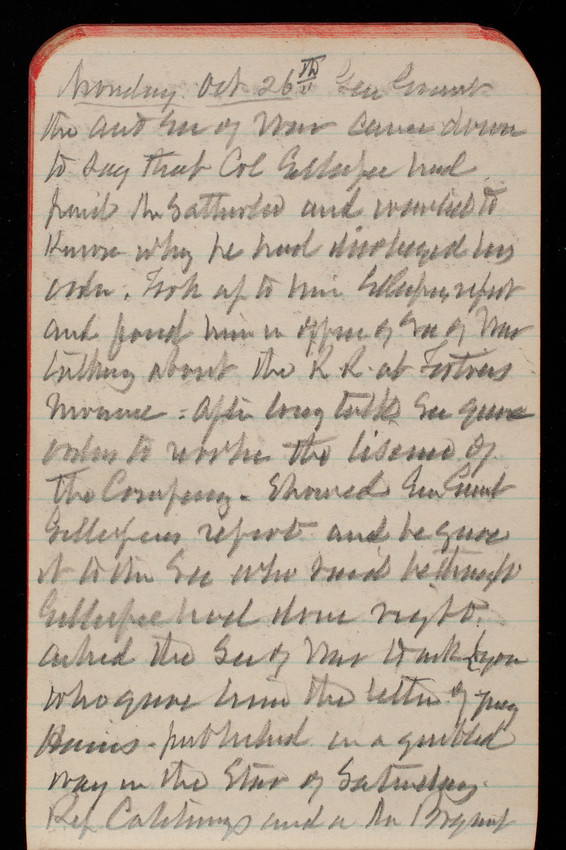 Monday Oct 26th Gen Grant
the act Sec of War came down
to say that Col Gillespie had
paid Mr and wanted to
know why he had his
order. Took up to him Gillespies report
and found him in office of Sec of War
talking about the R R at Fortress
Monroe - After long talk Sec gave
orders to the license of
the Company. Showed Gen Grant
Gillespies report and he gave
it to the Sec who said he thought
Gillespie had done right.
Asked the Sec of War
who gave him the letter of
Hains published in a garbled
way in the Star of Saturday.
Rep Catchings and a Mr Bryant